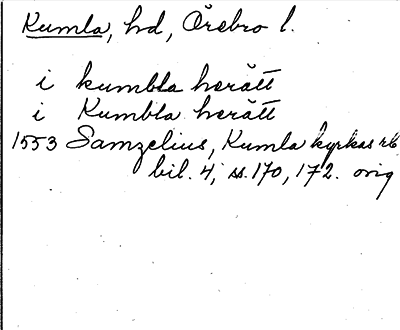 Kumla, hd, Örebro l.
i kumbla herått
i Kumbla herått
1553 Samzelius, Kumla kyrkas rb
bil. 4, ss. 170, 172. orig